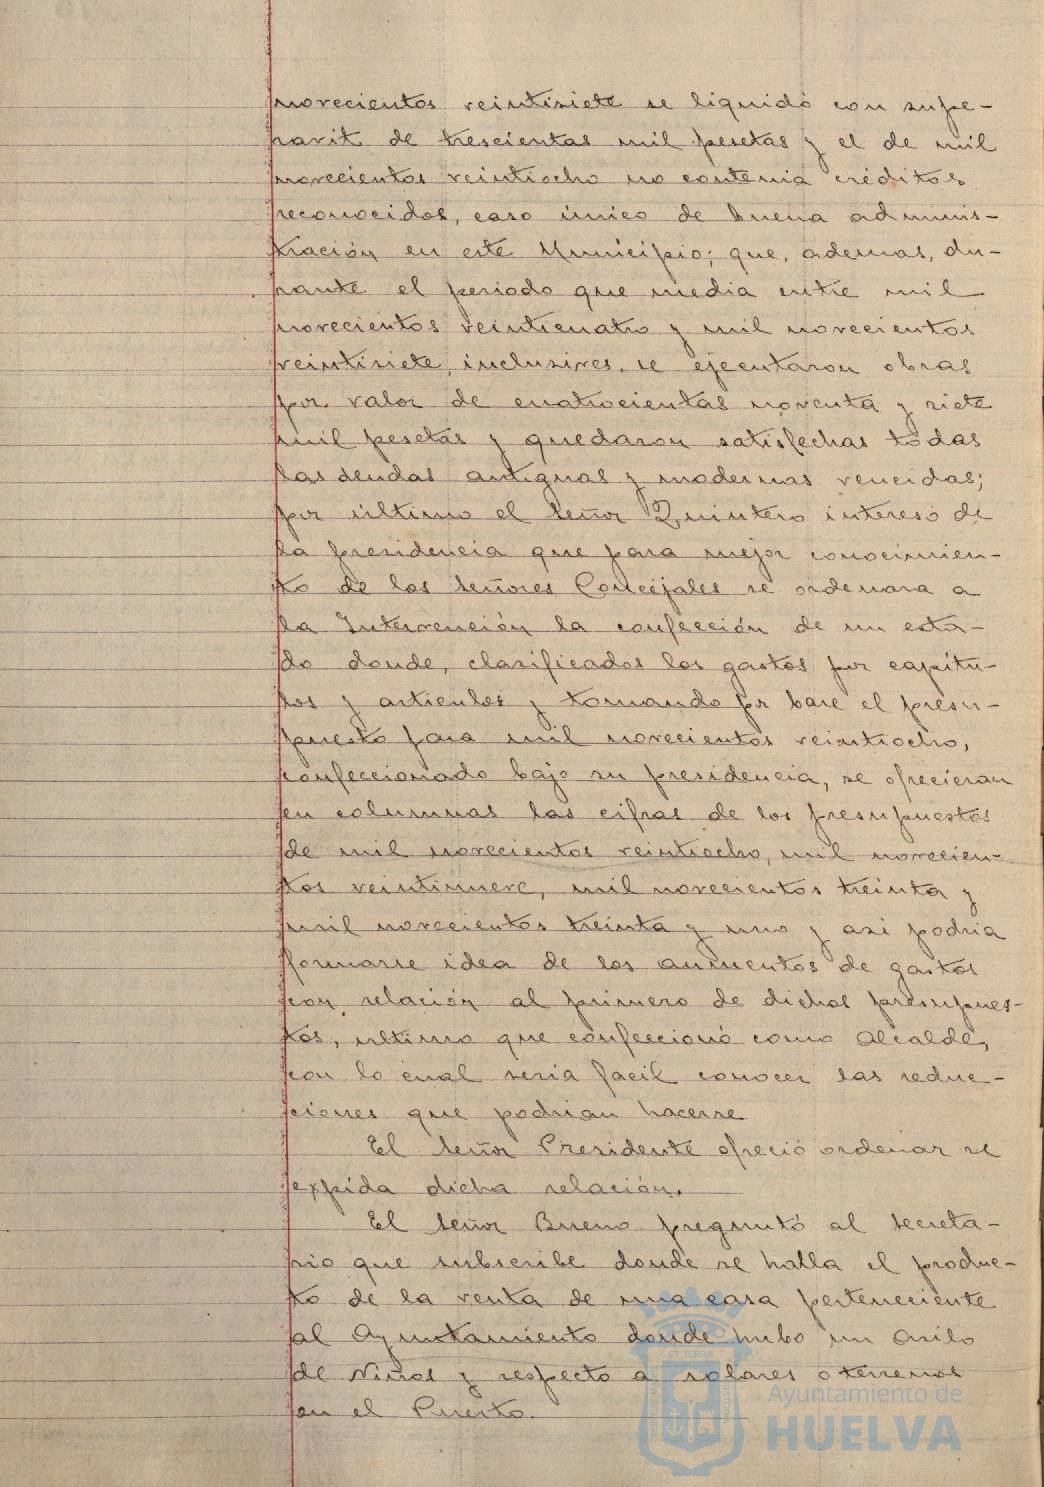 novecientos veintisiete se liquidó con supe-
ravit de trescientas mil pesetas y el de mil
novecientos veintiocho no contenia créditos
reconocidos, caso único de buena adminis-
tración en este Municipio; que, ademas, du-
rante el periodo que media entre mil
novecientos veinticuatro y mil novecientos
veintisiete, inclusives, se ejecutaron obras
por valor de cuatrocientas noventa y siete
mil pesetas y quedaron satisfechas todas
las deudas antiguas y modernas vencidas;
por último el Señor Quintero interesó de
la presidencia que para mejor conocimien-
to de los Señores Concejales se ordenara a
la Intervención la confección de un esta-
do donde, clasificados los gastos por capítu-
los y articulos y tomando por base el presu-
puesto para mil novecientos veintiocho,
confeccionado bajo su presidencia, se ofrecieran
en columnas las cifras de los presupuestos
de mil novecientos veintiocho, mil novecien-
tos veintinueve, mil novecientos treinta y
mil novecientos treinta y uno y asi podria
formarse idea de los aumentos de gastos
con relación al primero de dichos presupues-
tos, ultimo que confeccionó como Alcalde,
con lo cual seria facil conocer las reduc-
ciones que podrian hacerse
El Señor Presidente ofreció ordenar se
expida dicha relación.
El Señor Bueno preguntó al Secreta-
rio que subscribe donde se halla el produc-
to de la venta de una casa perteneciente
al Ayuntamiento donde hubo un Asilo
de Niños y respecto a solares o terrenos
en el Puerto.
Ayuntamiento de
HUELVA